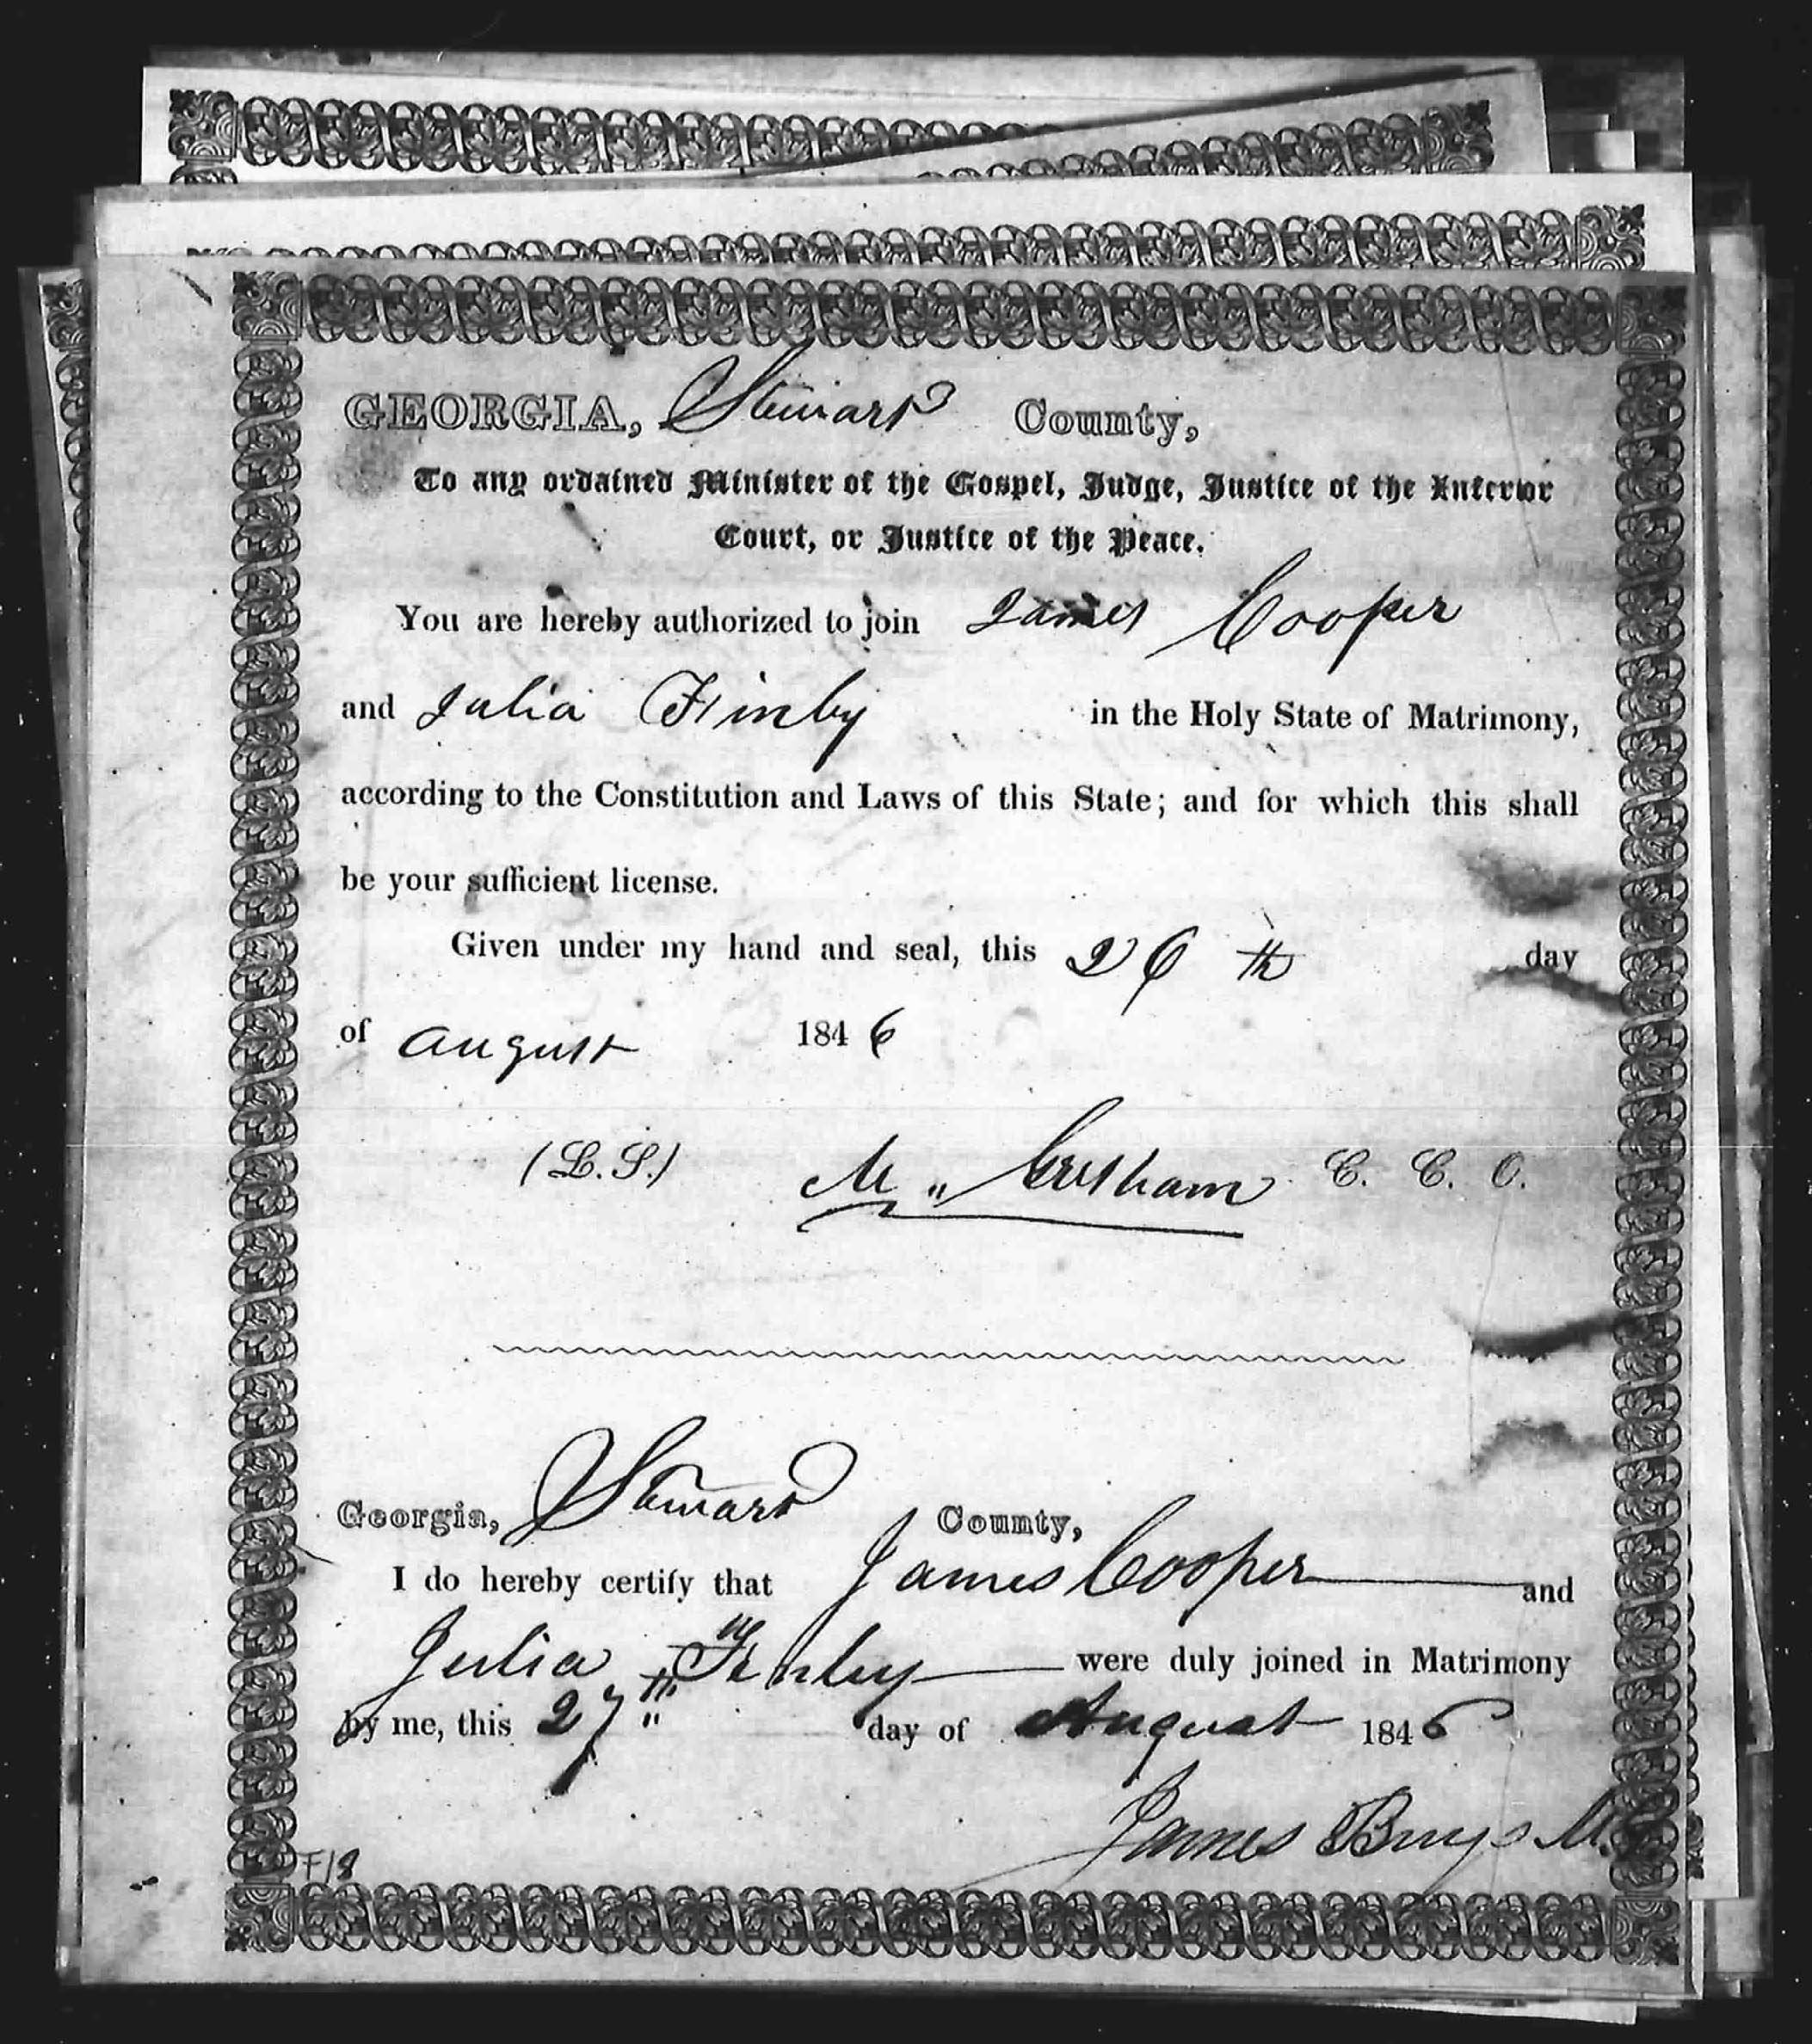 GEORGIA, Stewart County,
To any ordained Minister of the Gospel, Judge, Justice of the Inferior
Court, or Justice of the Peace.
You are hereby authorized to join James Cooper
and Julia Finly in the Holy State of Matrimony,
according to the Constitution and Laws of this State; and for which this shall
be your sufficient license.
Given under my hand and seal, this 26 th day
of august 1846
(L.S.) M. Gresham C. C. O.
Georgia, Stewart County,
I do hereby certify that James Cooper and
Julia Finley were duly joined in Matrimony
by me, this 27th day of August 1846
James
F/8